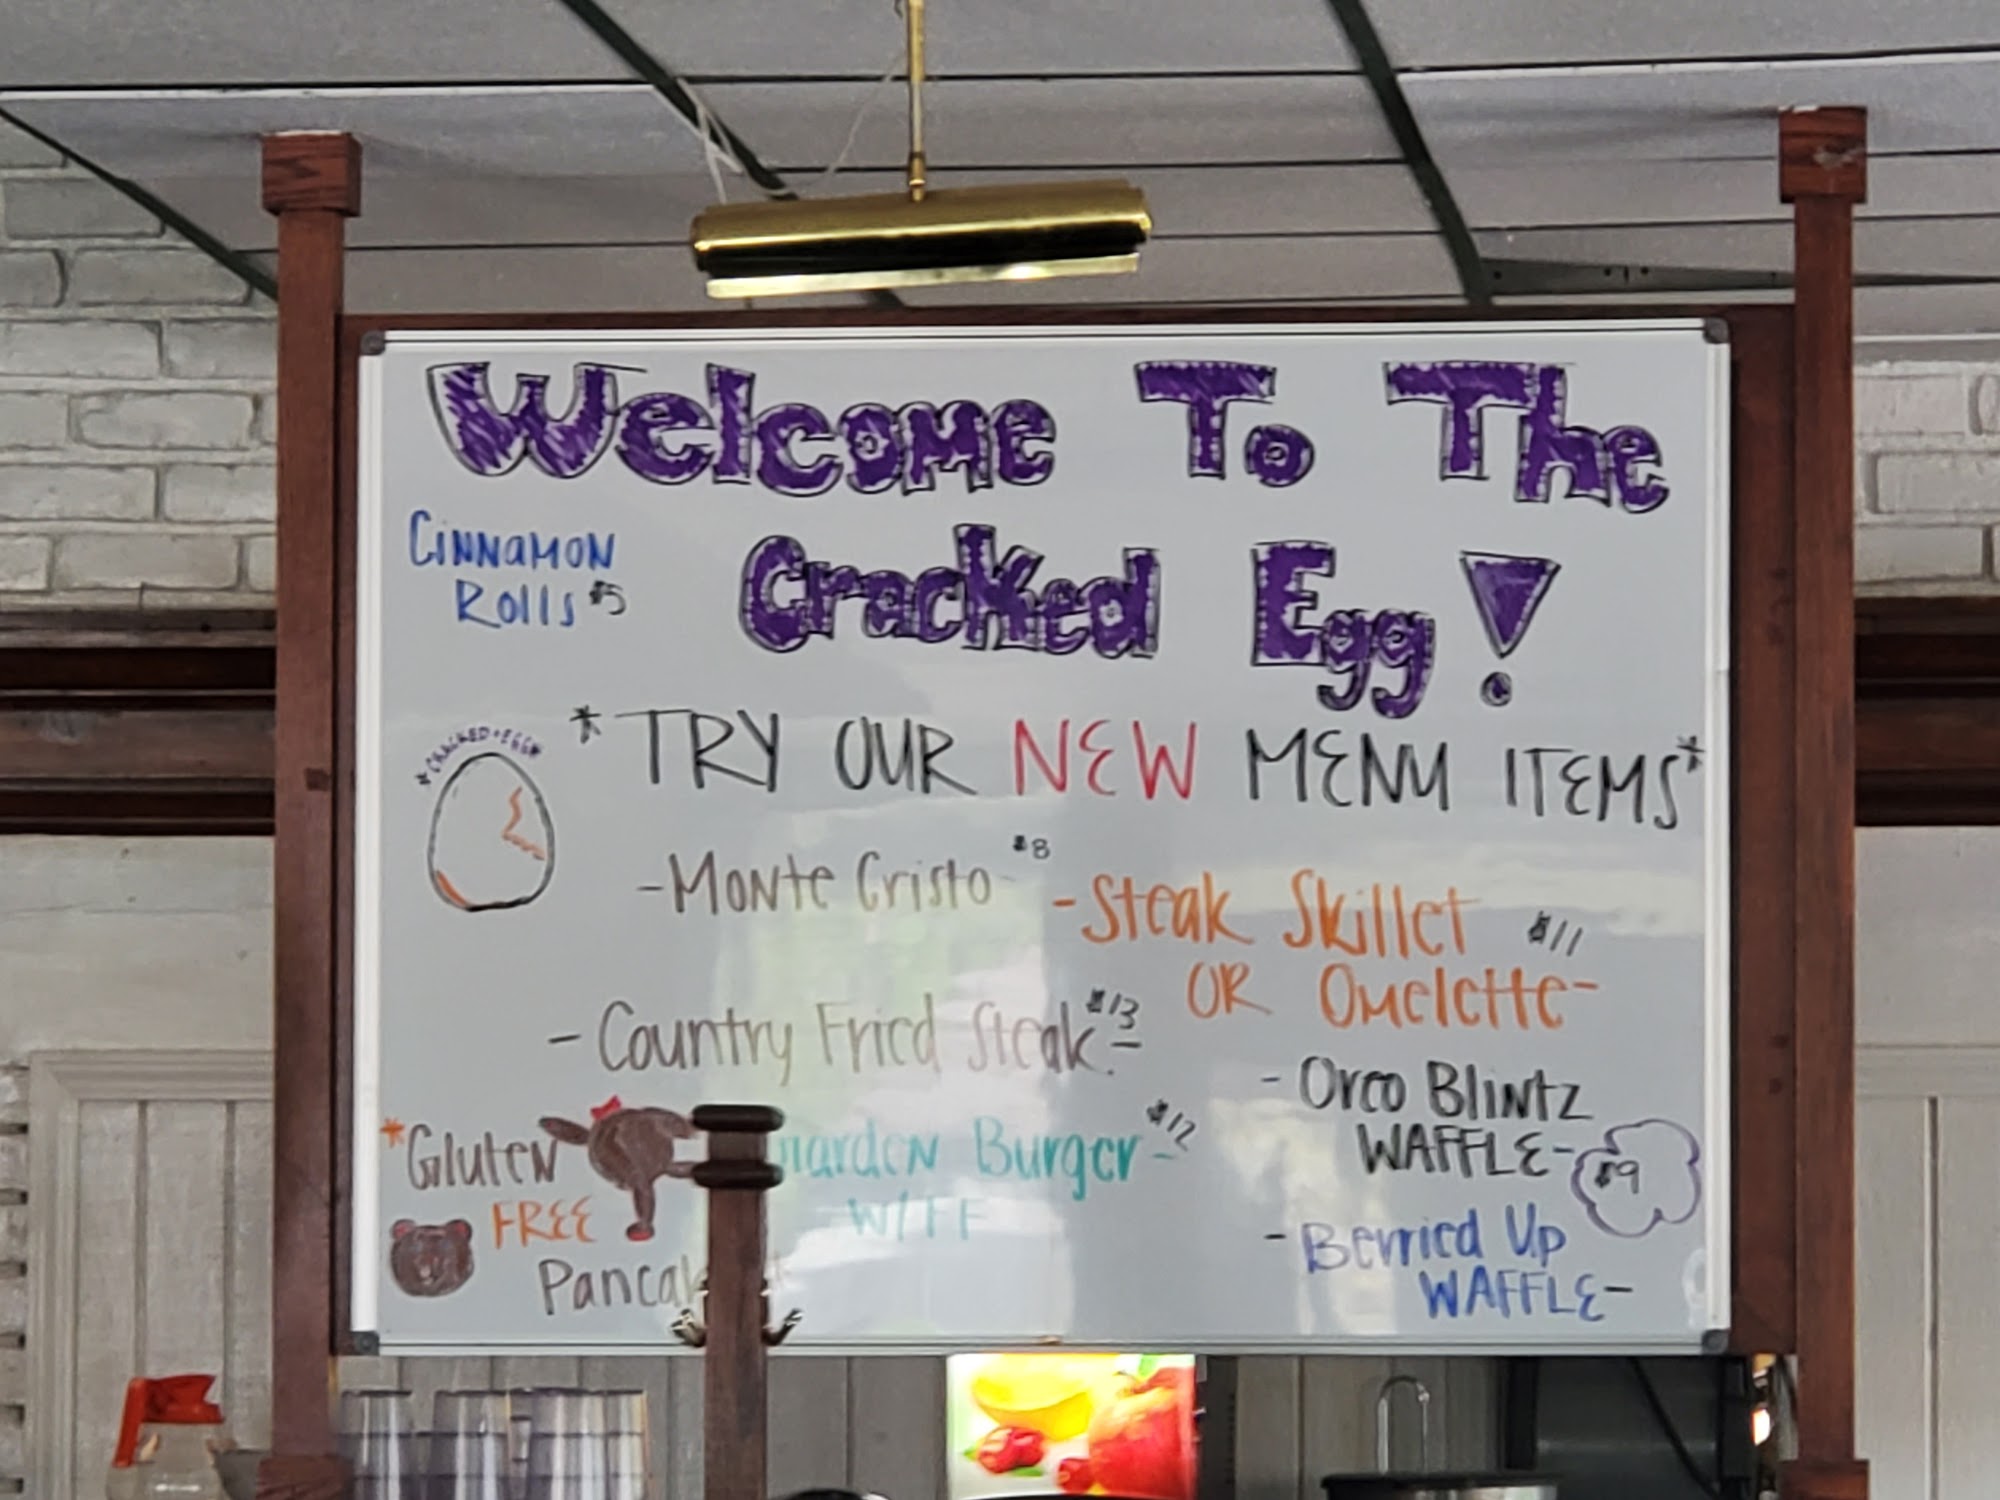 Welcome To The
Cracked Egg!
Cinnamon
Rolls $5
*CRACKED*EGG*
*TRY OUR NEW MENU ITEMS*
-Monte Cristo- $8
-Steak Skillet $11
OR Omelette-
-Country Fried Steak- $13
-Oreo Blintz
WAFFLE- $9
*Gluten
FREE
Garden Burger- $12
W/FF
-Berried Up
WAFFLE-